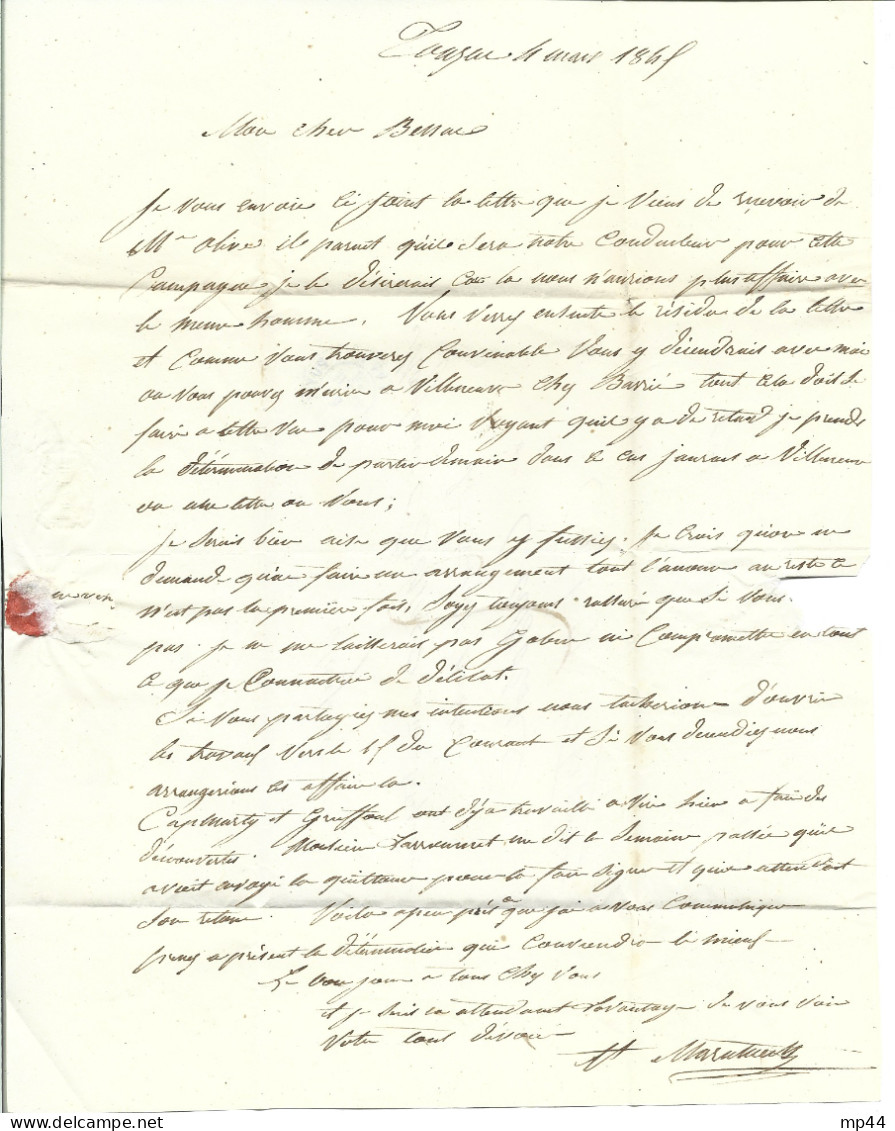 Touzac 4 mars 1845
Mon cher Bessac
Je vous envoie ci joint la lettre que je viens de recevoir de
Mr Olive il paroit qu'il sera notre conducteur pour cette
Campagne je le désirerais car la nous n'aurions plus affaire avec
le meme homme. Vous verrez ensuite le résidu de la lettre
et comme vous trouverez convenable vous y décendrais avec moi
ou vous pouvez m'ecrire a Villeneuve chez Barrié tout cela doit se
faire a lettre vue pour moi voyant qu'il y a du retard je prends
la détermination de partir demain dans ce cas j'aurais a Villeneuve
ou une lettre ou vous;
Je serais bien aise que vous y fussiez. Je crois qu'on ne
demande qu'a faire un arrangement tout l'amour au reste ce
n'est pas la première fois, Soyez toujours rassuré que si vous
pas je ne me laisserais pas gober ni compromettre en tout
ce que je connaitrai de délicat.
Si vous partagiez mes intentions nous tacherions d'ouvrir
les travaux vers le 15 du courant et si vous décendiez nous
arrangerions ces affaire la.
Capmarty et Griffoul ont déja travaillé a Vire hier a faire des
découvertes. Monsieur me dit la Semaine passée qu'il
avoit envoyé la quittance pour la faire signer et qu'il attendoit
son retour. Voila apeu près que j'ai a vous communiquer
prenez a présent la détermination qui conviendra le mieux
Le bon jour a tous chez vous
et je suis en attendant l'avantage de vous voir
Votre tout dévoué